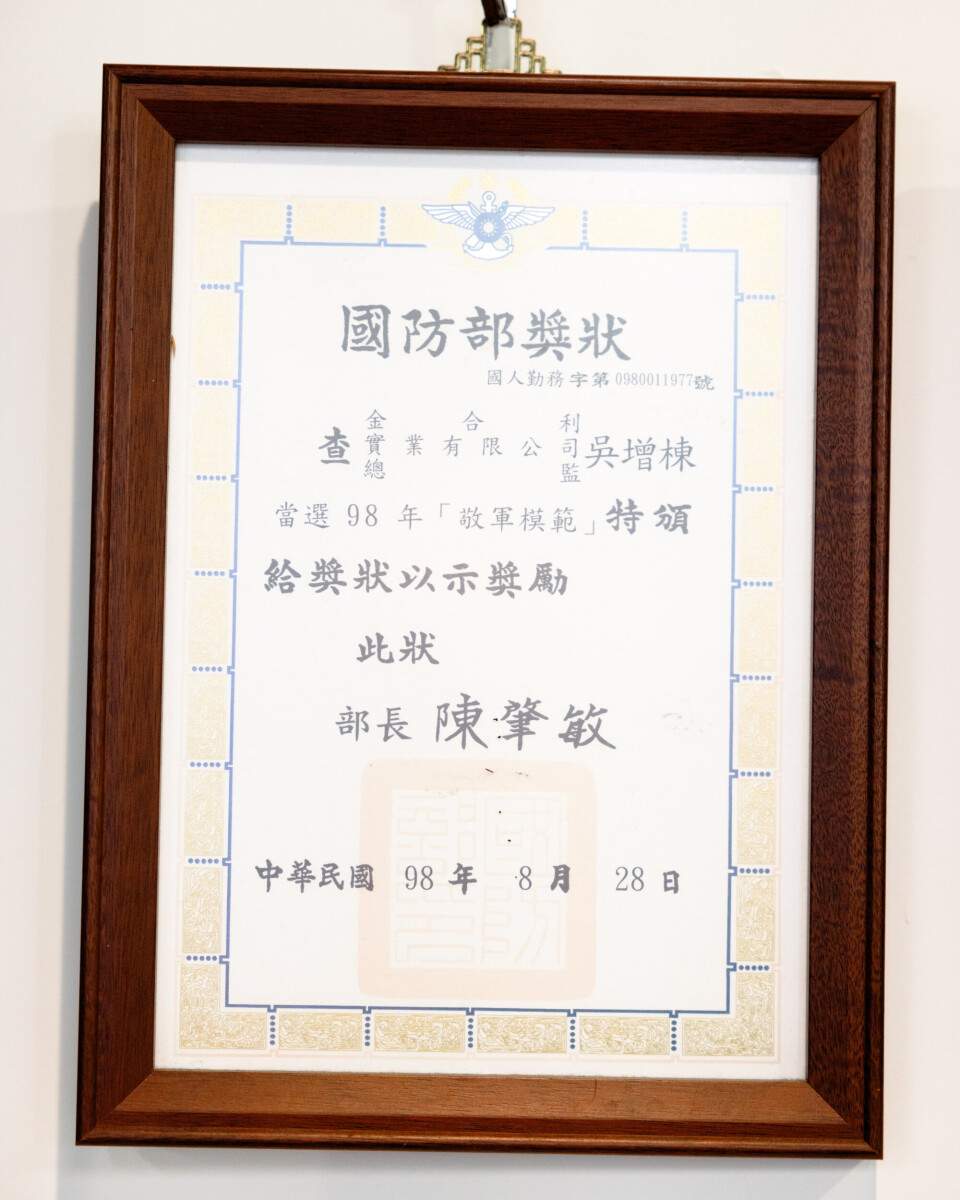 國防部獎狀
國人勤務字第0980011977號
查 金合利
實業有限公司
總監 吳增棟
當選 98 年「敬軍模範」特頒
給獎狀以示獎勵
此狀
部長 陳肇敏
中華民國 98 年 8 月 28 日